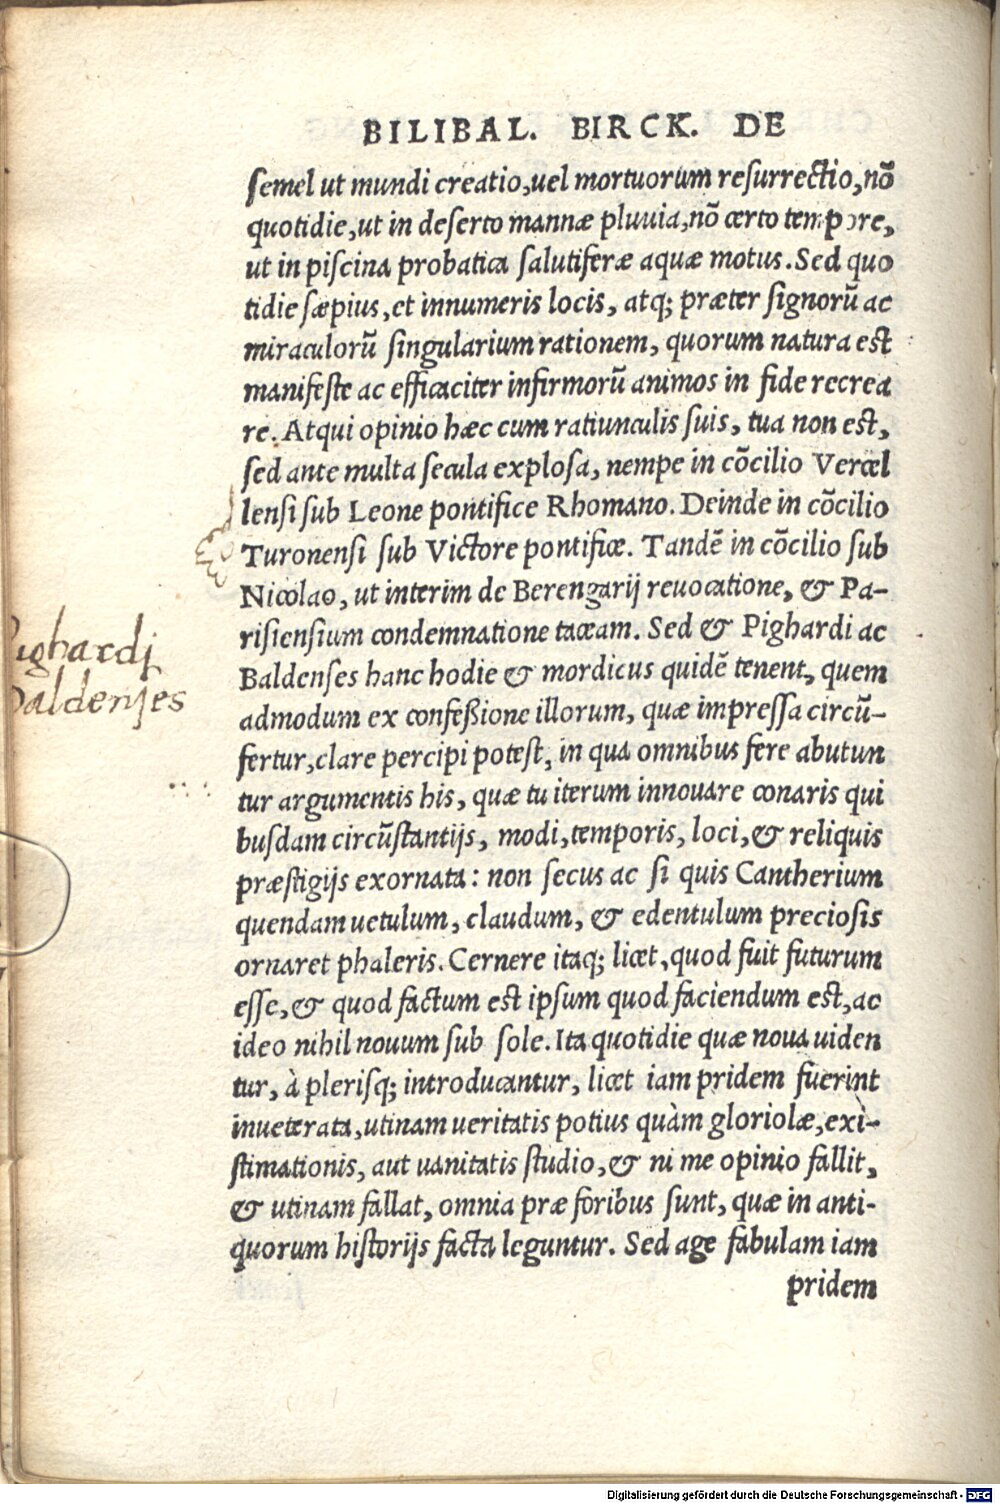 BILIBAL. BIRCK. DE
semel ut mundi creatio, uel mortuorum resurrectio, nõ
quotidie, ut in deserto mannæ pluuia, nõ certo tempore,
ut in piscina probatica salutiferæ aquæ motus. Sed quo
tidie sæpius, et innumeris locis, atq; præter signorũ ac
miraculorũ singularium rationem, quorum natura est
manifeste ac efficaciter infirmorũ animos in fide recrea
re. Atqui opinio hæc cum ratiunculis suis, tua non est,
sed ante multa secula explosa, nempe in cõcilio Vercel
lensi sub Leone pontifice Rhomano. Deinde in cõcilio
Turonensi sub Victore pontifice. Tandẽ in cõcilio sub
Nicolao, ut interim de Berengarij reuocatione, & Pa-
risiensium condemnatione taceam. Sed & Pighardi ac
Baldenses hanc hodie & mordicus quidẽ tenent, quem
admodum ex confeßione illorum, quæ impressa circũ-
fertur, clare percipi potest, in qua omnibus fere abutun
tur argumentis his, quæ tu iterum innouare conaris qui
busdam circũstantijs, modi, temporis, loci, & reliquis
præstigijs exornata: non secus ac si quis Cantherium
quendam uetulum, claudum, & edentulum preciosis
ornaret phaleris. Cernere itaq; licet, quod fuit futurum
esse, & quod factum est ipsum quod faciendum est, ac
ideo nihil nouum sub sole. Ita quotidie quæ noua uiden
tur, à plerisq; introducantur, licet iam pridem fuerint
inueterata, utinam ueritatis potius quàm gloriolæ, exi-
stimationis, aut uanitatis studio, & ni me opinio fallit,
& utinam fallat, omnia præ foribus sunt, quæ in anti-
quorum historijs facta leguntur. Sed age fabulam iam
pridem
Pighardj
Baldenses
Digitalisierung gefördert durch die Deutsche Forschungsgemeinschaft - DFG